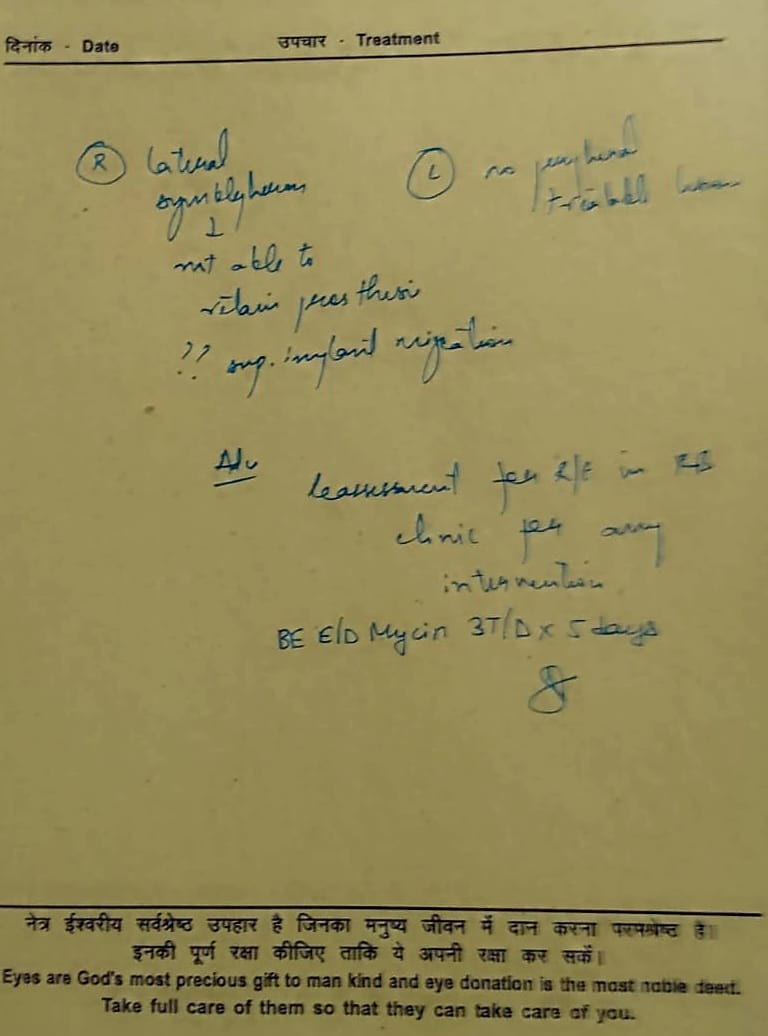 दिनांक - Date उपचार - Treatment
Ⓡ lateral
symblepharon
↓
not able to
retain prosthesis
?? sup. implant migration
Ⓛ no peripheral
treatable lesion
Adv
Reassessment for R/E in RB
clinic for any
intervention
BE E/D Mycin 3T/D x 5 days
नेत्र ईश्वरीय सर्वश्रेष्ठ उपहार है जिनका मनुष्य जीवन में दान करना परमश्रेष्ठ है।
इनकी पूर्ण रक्षा कीजिए ताकि ये अपनी रक्षा कर सकें।
Eyes are God's most precious gift to man kind and eye donation is the most noble deed.
Take full care of them so that they can take care of you.